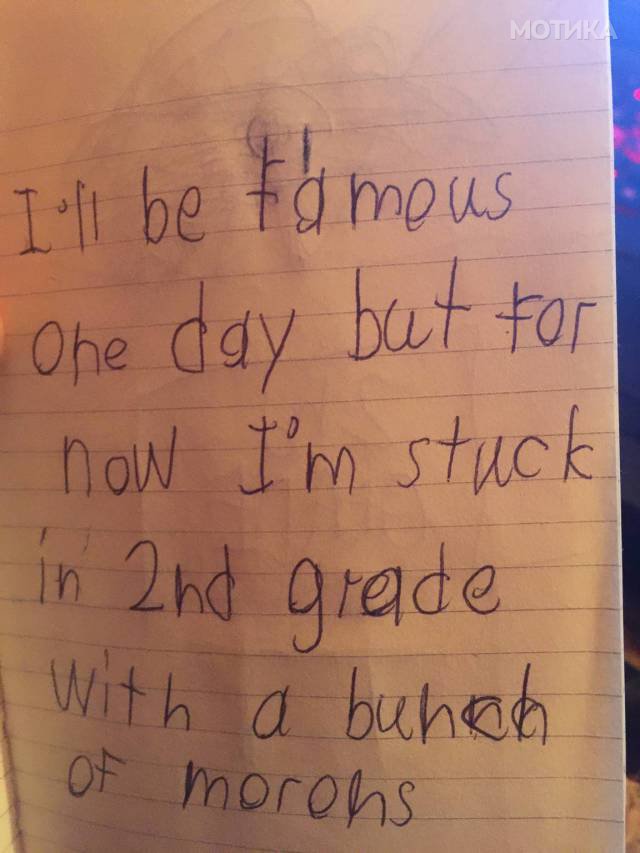 МОТИКА
I'll be famous
One day but for
now I'm stuck
in 2nd grade
with a bunch
of morons